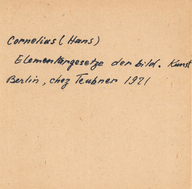 Cornelius (Hans)
Elementargesetze der bild. Kunst
Berlin, chez Teubner 1921